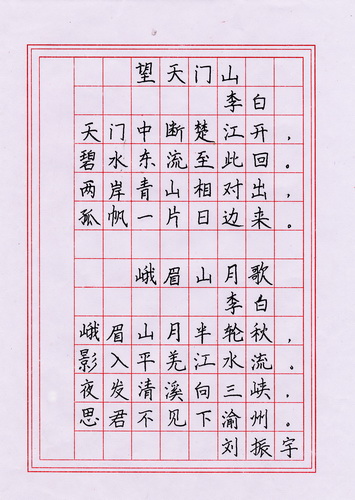 望天门山
李白
天门中断楚江开，
碧水东流至此回。
两岸青山相对出，
孤帆一片日边来。
峨眉山月歌
李白
峨眉山月半轮秋，
影入平羌江水流。
夜发清溪向三峡，
思君不见下渝州。
刘振宇